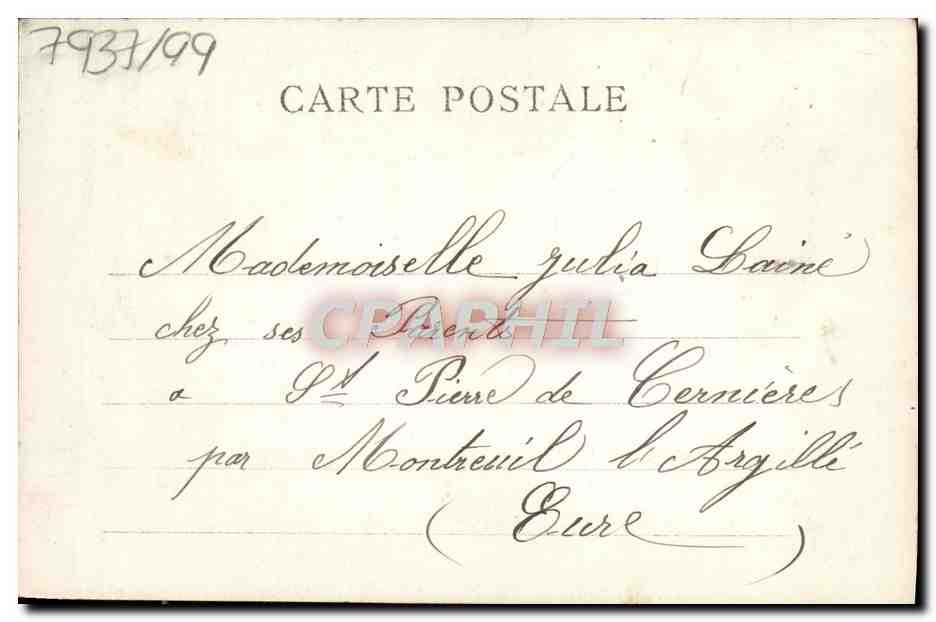 7937/99
CARTE POSTALE
Mademoiselle Julia Lainé
chez ses Parents
CPAPHIL
a St Pierre de Cernières
par Montreuil l'Argillé
(Eure)